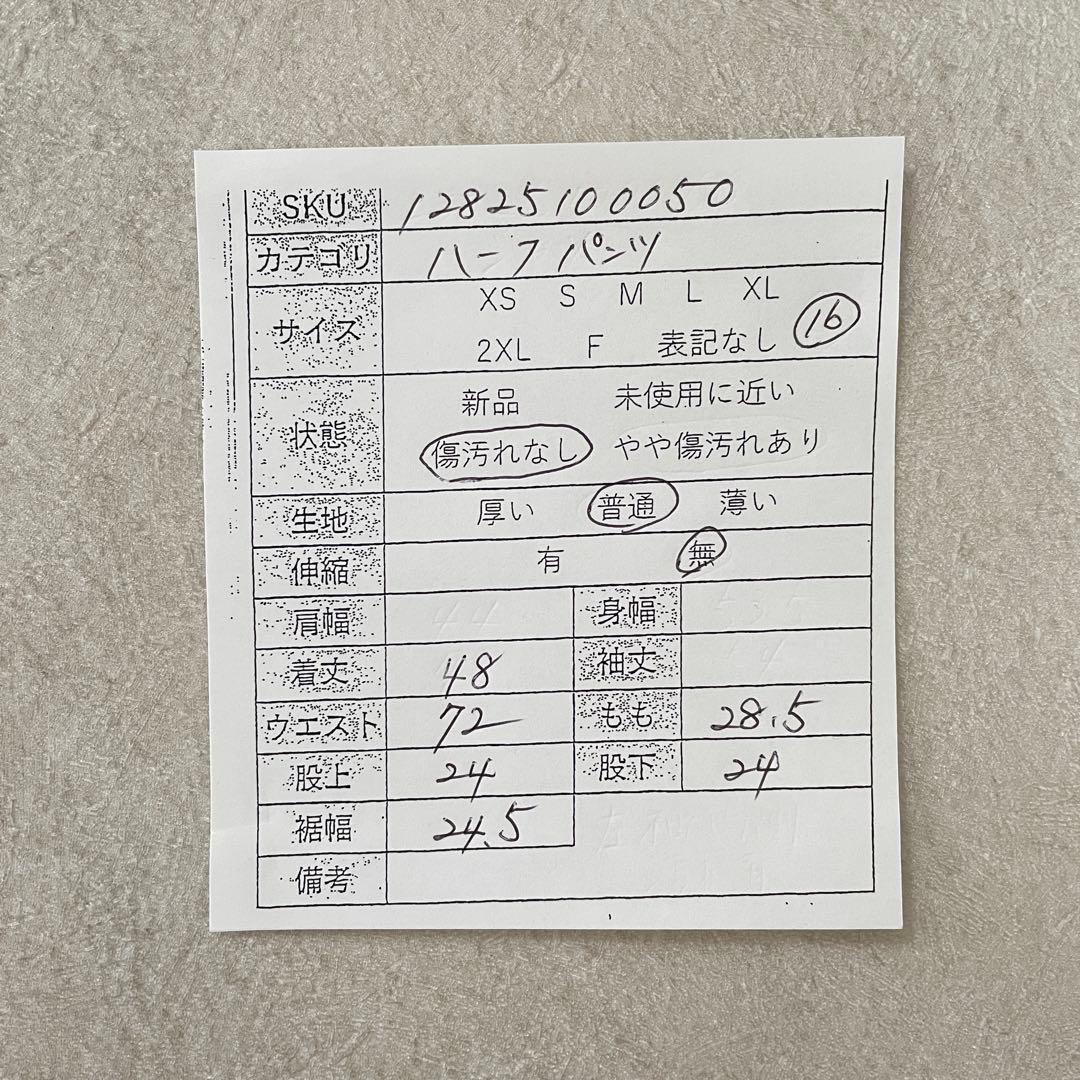 SKU 12825100050
カテゴリ ハーフパンツ
サイズ XS S M L XL
2XL F 表記なし 16
状態 新品 未使用に近い
傷汚れなし やや傷汚れあり
生地 厚い 普通 薄い
伸縮 有 無
肩幅 身幅
着丈 48 袖丈
ウエスト 72 もも 28.5
股上 24 股下 24
裾幅 24.5
備考